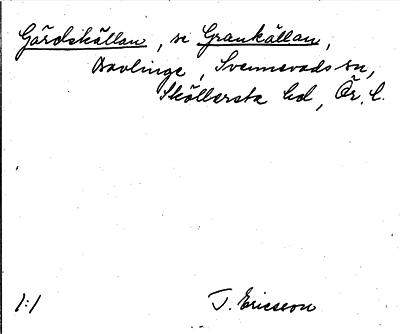 Gårdskällan, se Grankällan,
Bavlinge, Svennevads sn,
Sköllersta hd, Ör. l.
1:1 T. Ericsson